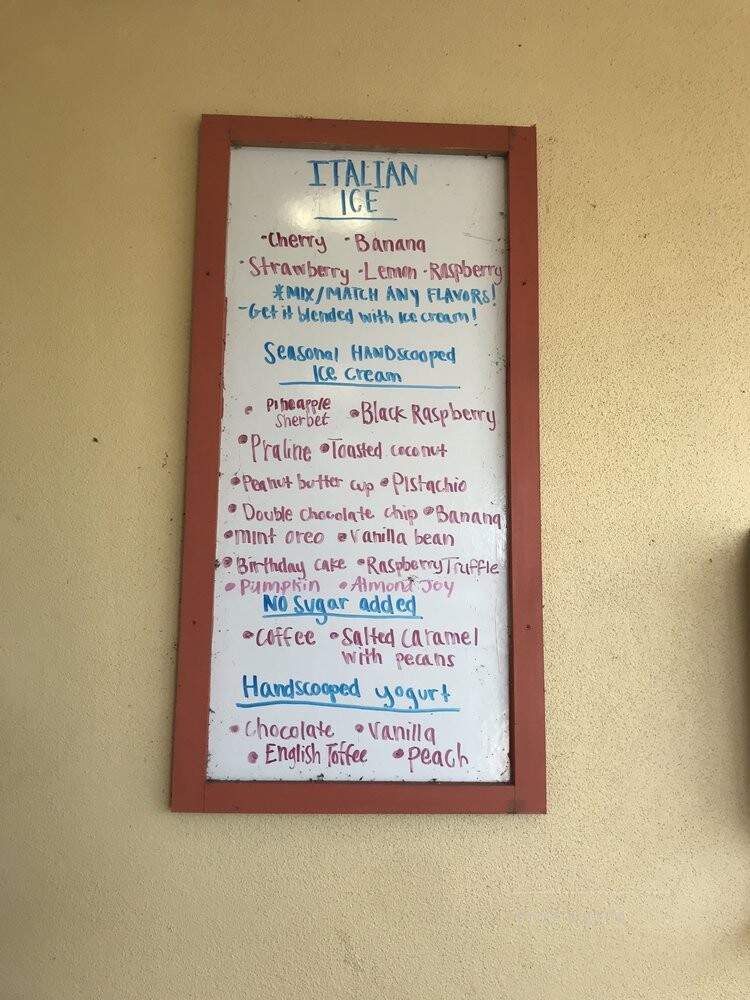 ITALIAN
ICE
-Cherry •Banana
•Strawberry -Lemon -Raspberry
*MIX/MATCH ANY FLAVORS!
-Get it blended with ice cream!
Seasonal HANDscooped
Ice Cream
• Pineapple Sherbet •Black Raspberry
•Praline •Toasted coconut
•Peanut butter cup •Pistachio
• Double chocolate chip •Banana
•mint oreo •Vanilla bean
•Birthday cake •Raspberry Truffle
•Pumpkin •Almond Joy
No Sugar added
•Coffee •Salted Caramel
with pecans
Handscooped yogurt
•Chocolate •Vanilla
•English Toffee •Peach